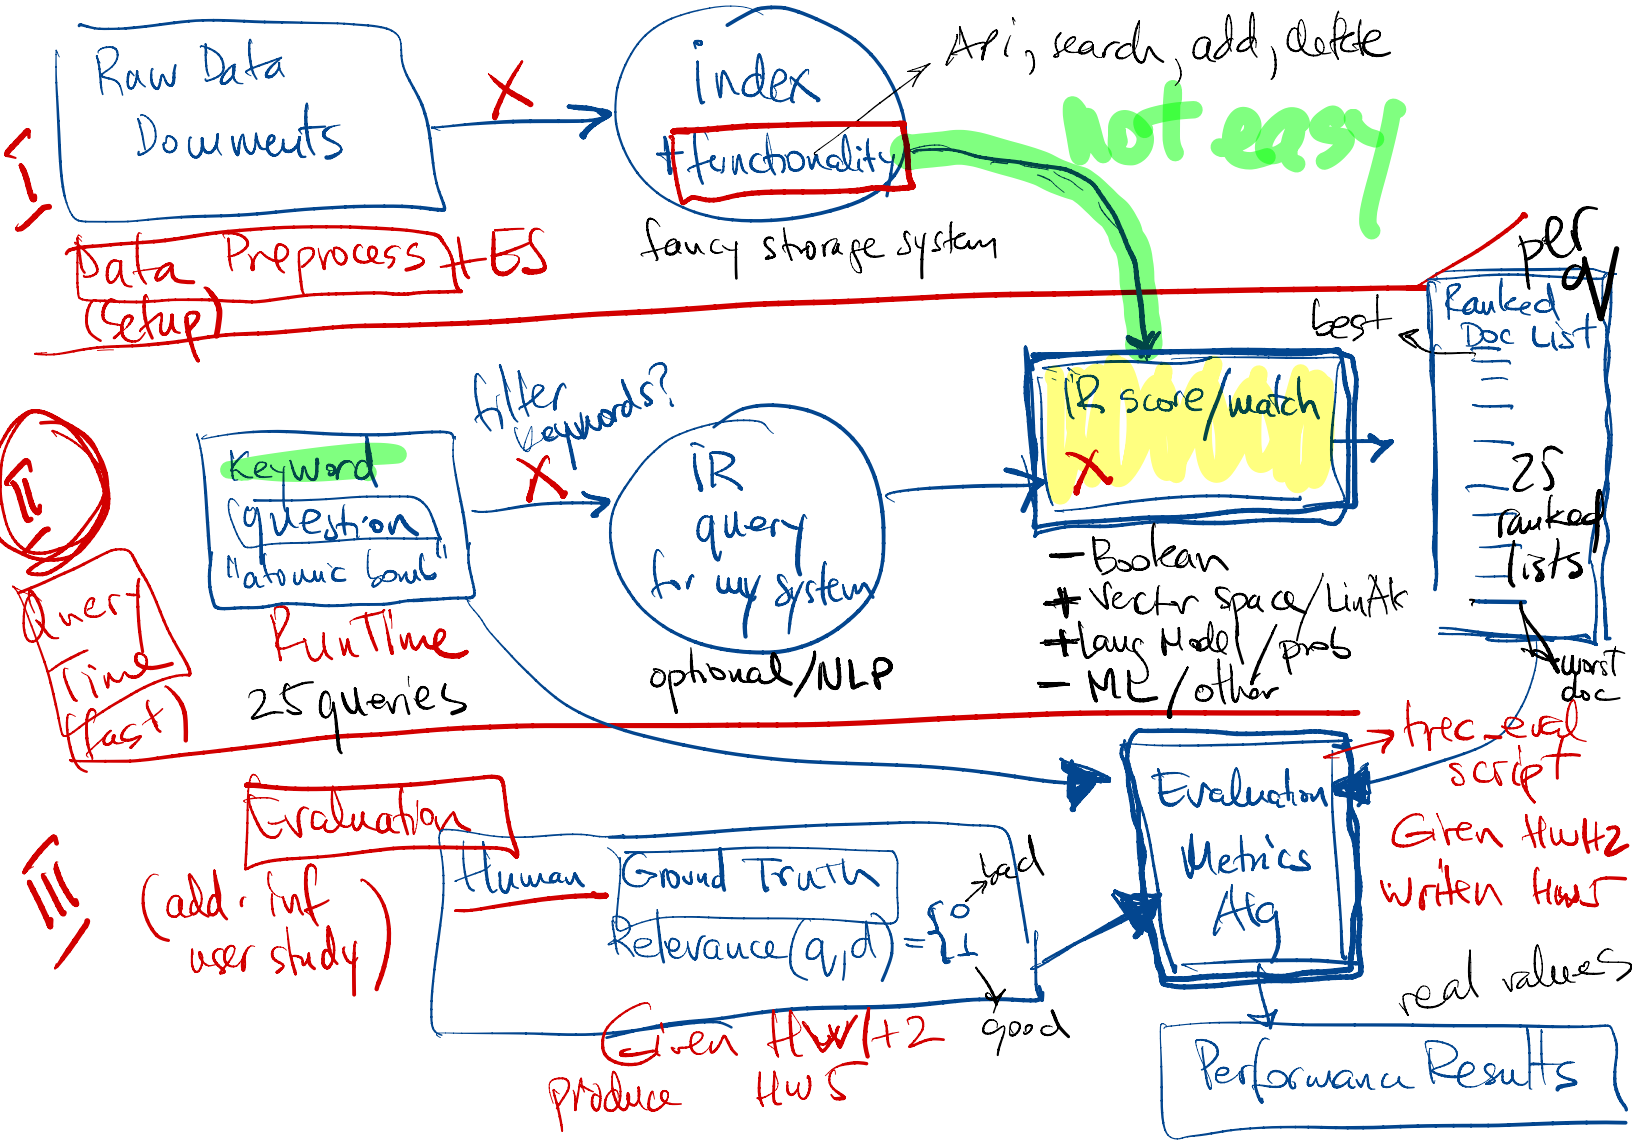 I
Raw Data
Documents
X
index
+ functionality
Api, search, add, delete
not easy
fancy storage system
Data Preprocess + ES
(Setup)
per q
Ranked
Doc List
best
25
ranked
lists
worst
doc
II
Query
Time
(fast)
Keyword
question
"atomic bomb"
RunTime
25 queries
filter
keywords?
X
IR
query
for my system
optional/NLP
IR score/match
X
- Boolean
+ Vector space/LinAlg
+ Lang Model/prob
- ML/other
III
Evaluation
(add. inf
user study)
Human
Ground Truth
Relevance(q,d) = { 0
1
bad
good
Given HW1+2
produce HW5
Evaluation
Metrics
Alg
trec_eval
script
Given HW1+2
writen HW5
real values
Performance Results